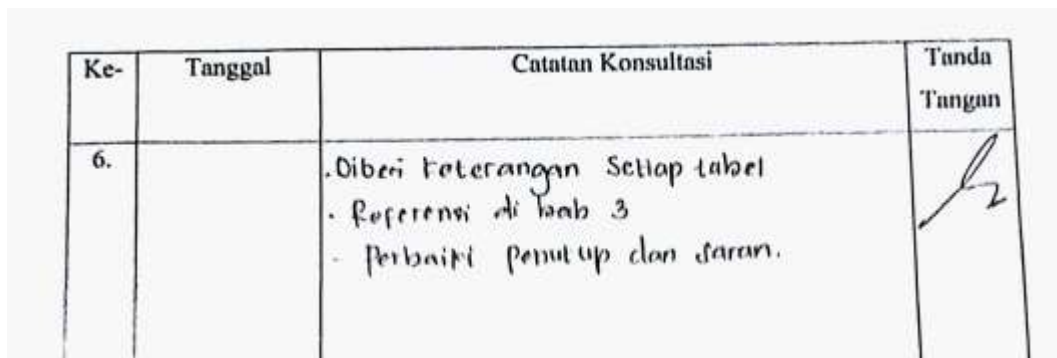 Ke- Tanggal Catatan Konsultasi Tanda
Tangan
6. .Diberi keterangan Setiap tabel
. Referensi di bab 3
- Perbaiki penutup dan saran.